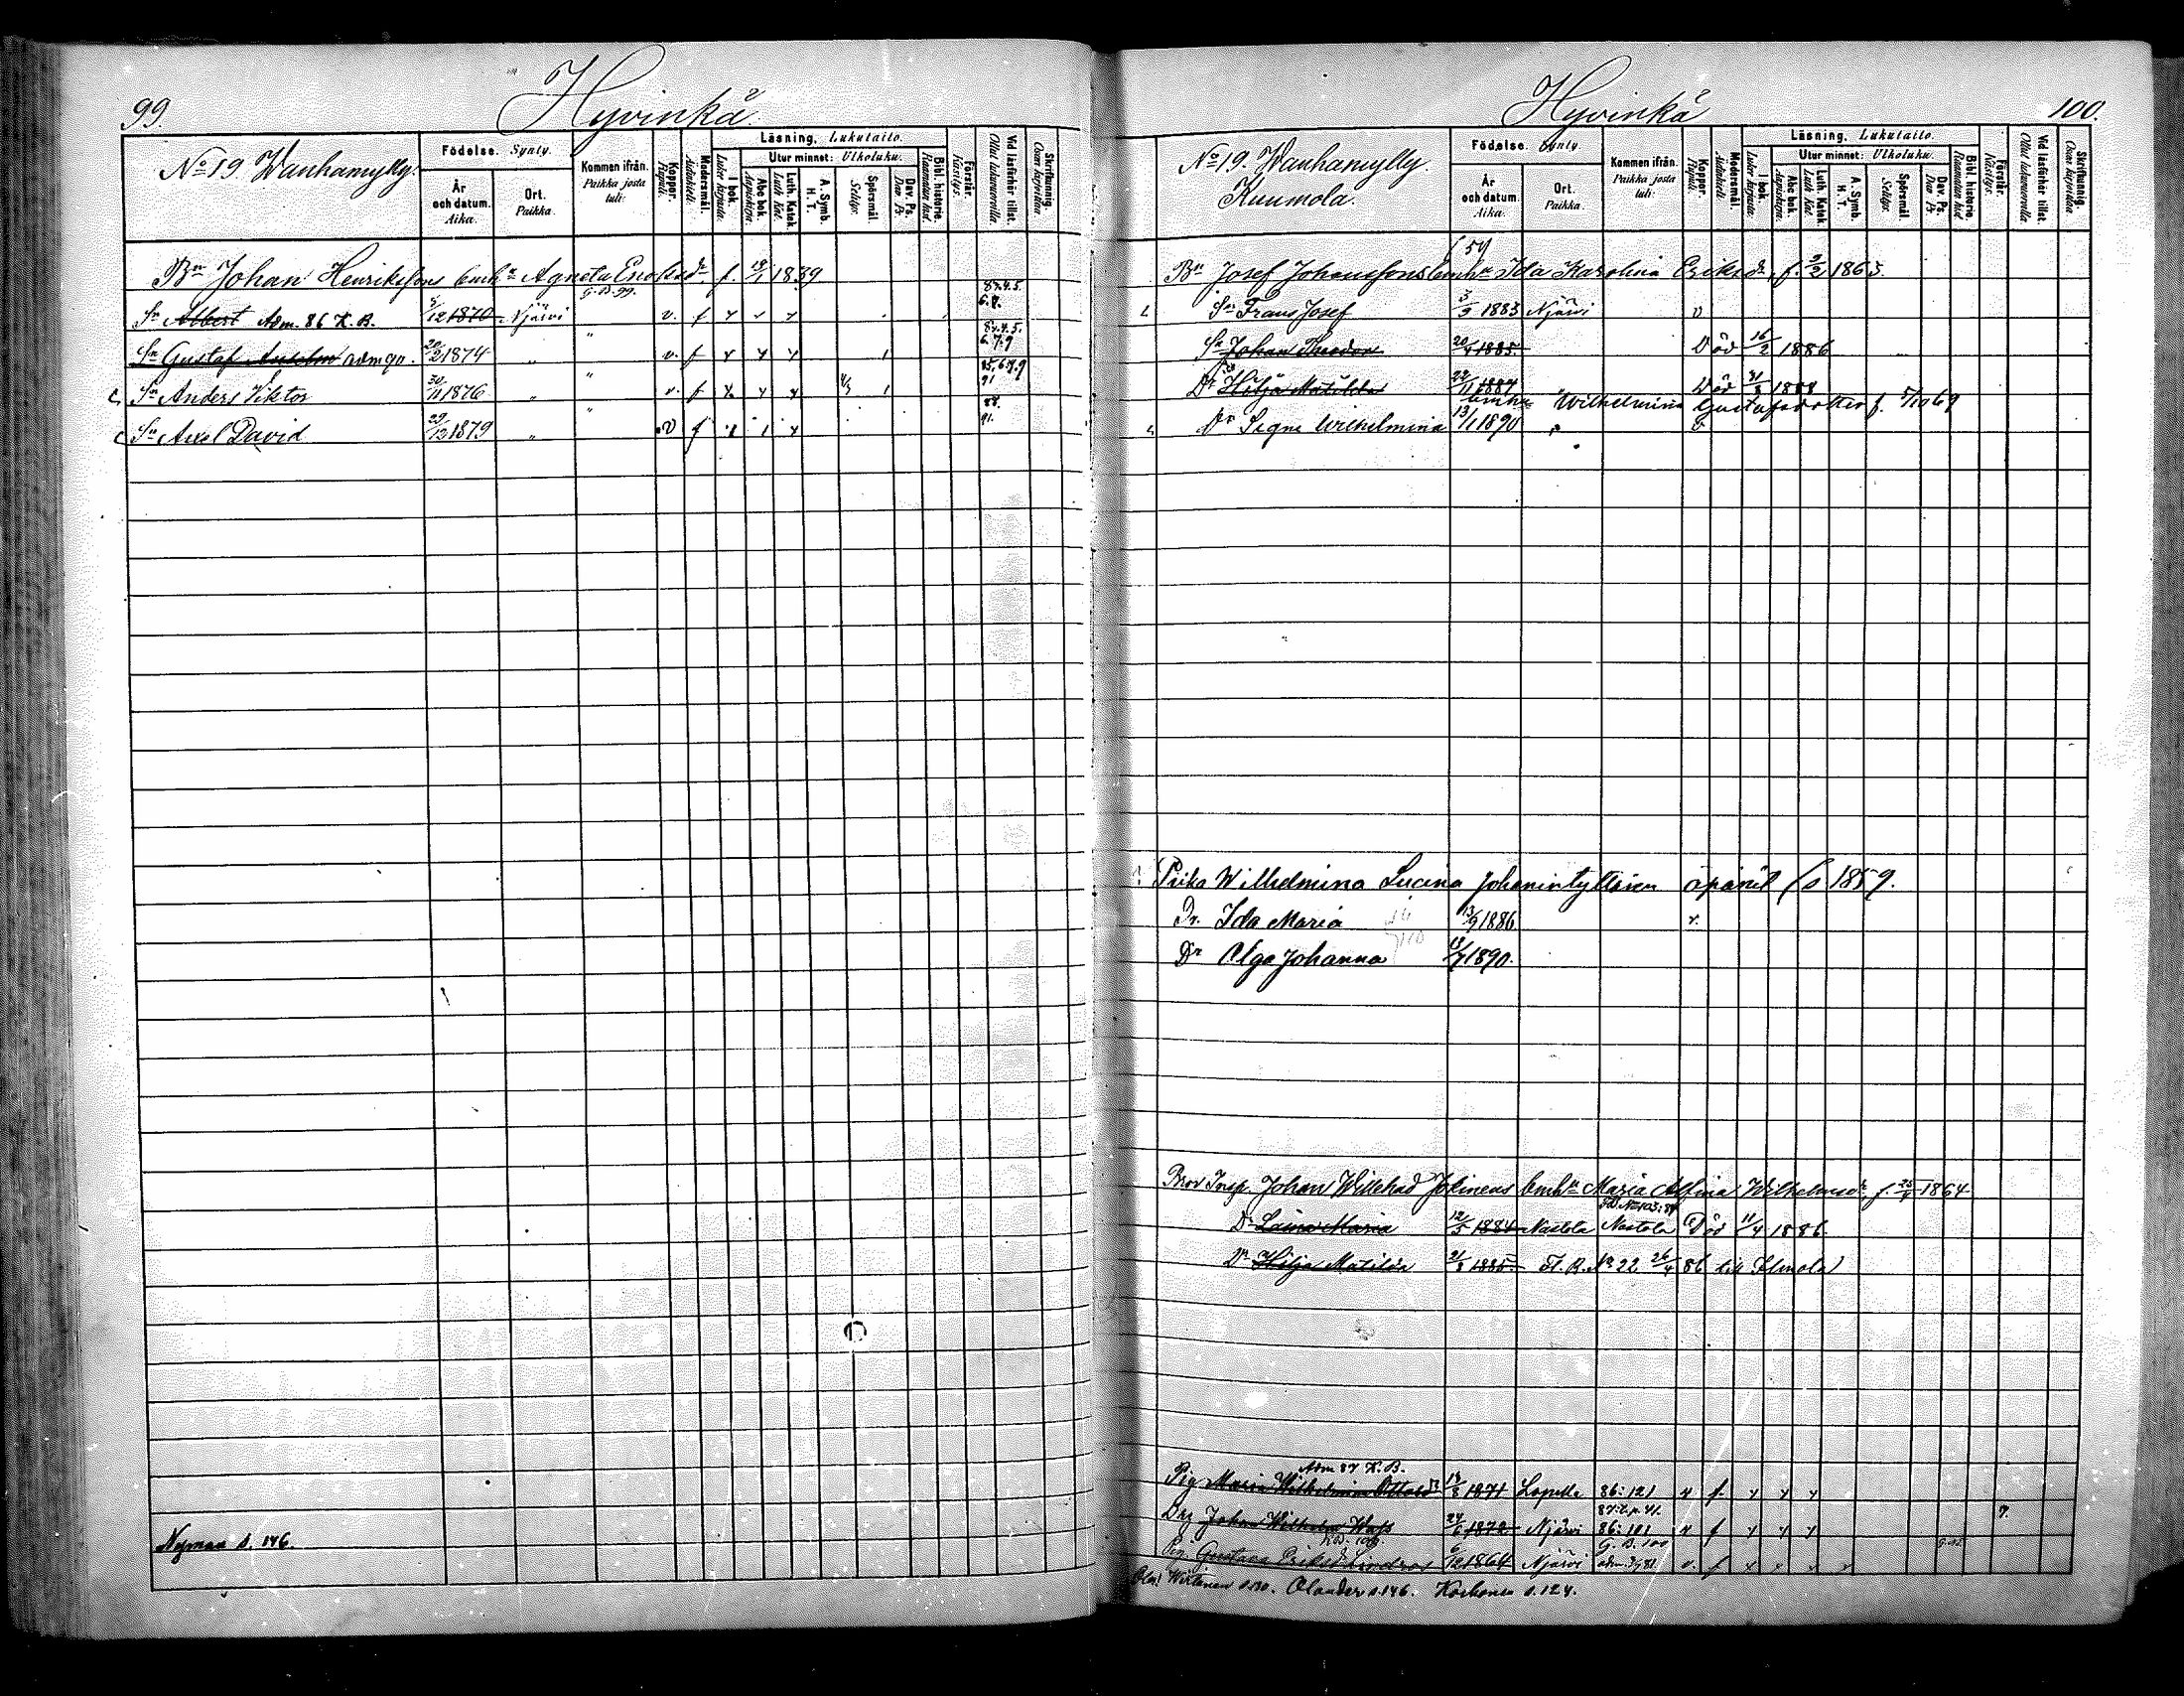 99.
Hyvinkä.
No 19. Wanhamylly.
Födelse. Synty.
År och datum. Aika.
Ort. Paikka.
Kommen ifrån. Paikka josta tuli:
Koppor. Rupuli.
Modersmål. Äidinkieli.
Läsning. Lukutaito.
I bok. Lukee kirjasta.
Utur minnet: Ulkoluku.
Abc bok. Aapiskirja.
Luth. Katek. Luth. Kat.
A. Symb. H. T.
Spörsmål. Selitys.
Dav. Ps. Dav. Ps.
Bibl. historie. Raamatun hist.
Förstår. Käsitys.
Vid läsförhör tillst. Ollut lukuvuorolla.
Skriftkunnig. Osaa kirjoittaa.
Bn Johan Henrikssons Agneta Enoksdr. f. 19/1 1839
G.B. 99.
Sn Albert Adm. 86 K.B. 5/12 1870 Njärvi v. f 83.4.5. 6.7.
Sn Gustaf Anselm adm 90. 20/2 1874 " " v. f 83.4.5. 6.7.9
Sn Anders Viktor 30/11 1876 " " v. f 85.6.7.9 91
Sn Axel David 29/12 1879 " " v f 88. 91.
Nyman s. 146.
100.
Hyvinkä
No 19. Wanhamylly.
Kuumola.
Födelse. Synty.
År och datum. Aika.
Ort. Paikka.
Kommen ifrån. Paikka josta tuli:
Koppor. Rupuli.
Modersmål. Äidinkieli.
Läsning. Lukutaito.
I bok. Lukee kirjasta.
Utur minnet: Ulkoluku.
Abc bok. Aapiskirja.
Luth. Katek. Luth. Kat.
A. Symb. H. T.
Spörsmål. Selitys.
Dav. Ps. Dav. Ps.
Bibl. historie. Raamatun hist.
Förstår. Käsitys.
Vid läsförhör tillst. Ollut lukuvuorolla.
Skriftkunnig. Osaa kirjoittaa.
Bn Josef Johanssons Ida Karolina Eriksdr. f. 9/2 1863.
Sn Frans Josef 3/3 1883 Njärvi v
Sn Johan Theodor 20/4 1885. Död 16/2 1886
Dr Hilja Matilda 22/11 1887 Död 31/3 1888
Wilhelmina Gustafsdotter f. 5/10 69
Dr Signe Wilhelmina 13/1 1890 " v
Piika Wilhelmina Lucina Johanintyttären äpärät (s 1859.
Dr. Ida Maria 13/9 1886 v.
Dr Olga Johanna 1890.
Brov Insp. Johan Willehad Maria Alfina Wilhelmsdr. f. 25/4 1864
Dr Laina Maria 12/5 1884 Nastola Nastola Död 11/4 1886.
Dr Hilja Matilda 21/8 1885 Fl. B. No 22 26/4 86 till
Adm 87 K.B.
Pig Maria Wilhelmina Ottosdr 18/8 1871 Loppella 86: 121 v f
Drg Johan Wilhelm 24/6 1872 Njärvi 86: 101 v f 7.
Pig. Gustava Eriksdr Lindroos 1864 Njärvi G.B. 100 v. f
Olai Wirtanen s. 130. Olander s. 146. Koskonen s. 124.